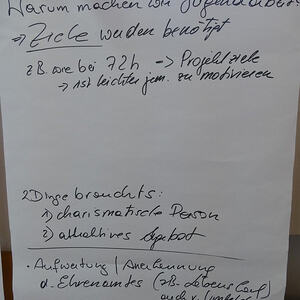 Warum machen wir Jugendarbeit?
⇒ Ziele werden benötigt
zB wie bei 72h → Projektziele
→ ist leichter jem. zu motivieren
2 Dinge brauchts:
1) charismatische Person
2) attraktives Angebot
· Aufwertung / Anerkennung
d. Ehrenamtes (zB. Lebenslauf)
auch v.